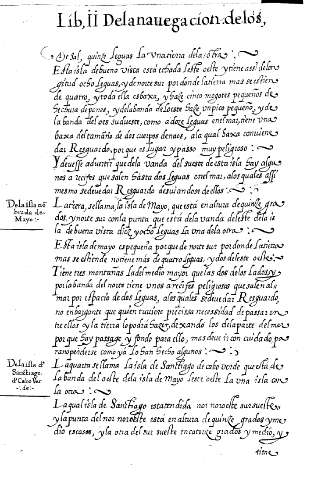 Lib. II De la navegacion de los,
de Sal, quinze leguas la una tierra de la otra
Esta isla de buena vista está echada leste oeste y tiene assi de lon
gitud ocho leguas, y de norte sur por donde la tierra mas se estien
de quatro, y toda ella es baxa, y haze cinco mogotes pequeños a
fechura de penos, y de la banda de Loeste haze un pico pequeño, y de
la banda del oes sudueste, como a doze leguas en el mar, tiene una
baxa del tamaño de dos cuerpos de naos, a la qual se a convenie
dar Resguardo, por que es lugar y passo muy peligroso
Y devesse advertir que de la vanda del sueste de esta isla hay algu
nos arrecifes que salen hasta dos leguas en el mar, a los quales assi
mesmo se deve dar Resguardo desviandose dellos
De la isla nō
brada de
Mayo
La tercera, se llama, la isla de Mayo, que está en altura de quinze gra
dos, y norte sur con la punta que está de la vanda de leste de la is
la de buena vista diez y ocho leguas la una de la otra
Esta isla de mayo es pequeña porque de norte sur por donde la tierra
mas se estiende no tiene más de quatro leguas, y dos de leste oeste
Tiene tres montañas la del medio mayor que las dos de los lados, y
por la banda del norte tiene unos arrecifes peligrosos que salen al
mar por espacio de dos leguas, a los quales se deve dar Resguardo,
no enbargante que quien tuviere precissa necessidad de passar en
tre ellos y la tierra lo podrá hazer, dexando los de la parte del mar
porque hay passage y fondo para ello, mas deve ir con cuidado pa
ra no perderse como ya lo han hecho algunos
De la isla d'
Santtiago
d' Cabo Ver
de
La quarta se llama la isla de Santtiago de cabo verde que está de
la banda del oeste de la isla de Mayo leste oeste la una isla con
la otra
La qual isla de Santtiago está tendida nor noroeste sur sueste
y la punta del nor noroeste está en altura de quinze grados y me
dio escasos, y la otra del sur sueste en catorze grados y medio, y